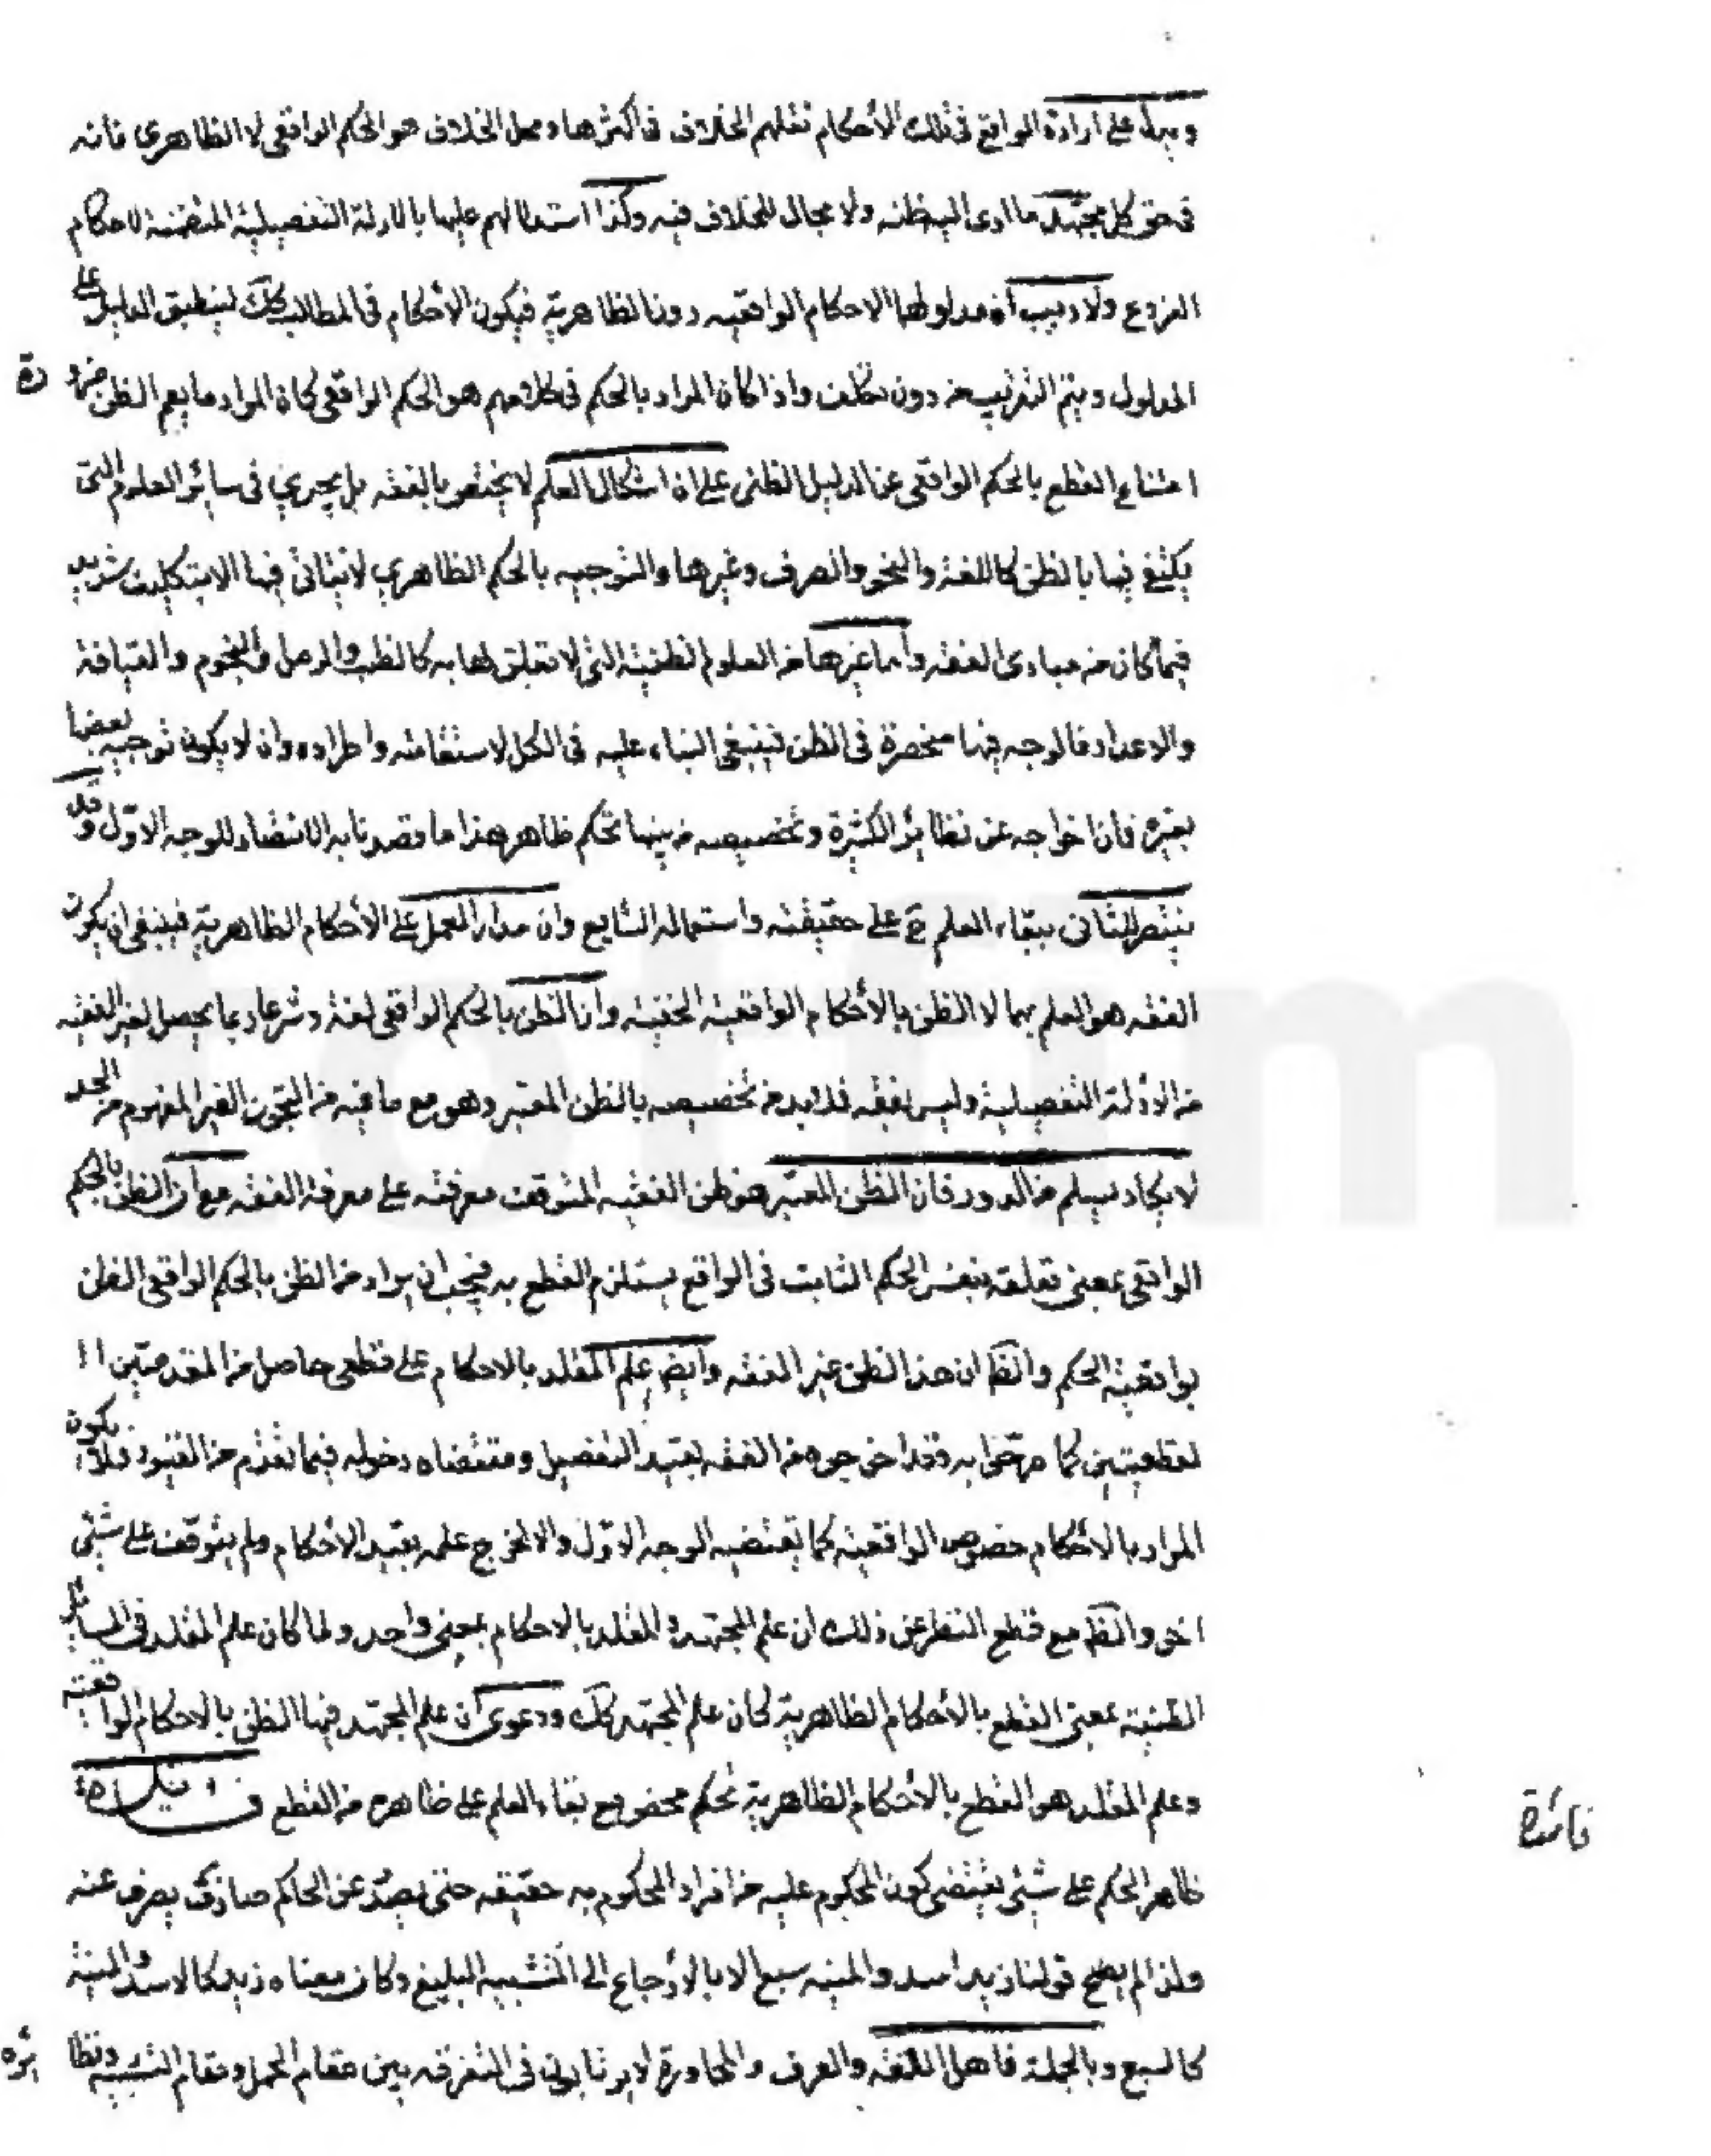 ويدل على ارادة الواقع فى تلك الأحكام نقلهم الخلاف فى اكثرها ومحل الخلاف هو الحكم الواقعى لا الظاهرى فانه
فى حق كل مجتهد ما ادى اليه ظنه ولا مجال للخلاف فيه وكذا استدلالهم عليها بالادلة التفصيلية المتضمنة لاحكام
الفروع ولا ريب أن مدلولها الاحكام الواقعيه دون الظاهرية فيكون الأحكام فى المطالب كك لينطبق الدليل على
المدلول ويتم التقريب من دون تكلف واذا كان المراد بالحكم فى كلامهم هو الحكم الواقعى كان المراد ما يعم الظن ضرورة
امتناع القطع بالحكم الواقعى عن الدليل الظنى على ان اشكال العلم لا يختص بالفقه بل يجري فى سائر العلوم التى
يكتفى فيها بالظن كاللغة والنحو والصرف وغيرها والتوجيه بالحكم الظاهري لا يتاتى فيها الا بتكليف شديد
فيما كان من مبادى الفقه وأما غيرها من العلوم الظنية التى لا تعلق لها به كالطب والرمل والنجوم والقيافة
والاعداد فالوجه فيها منحصرة فى الظن فينبغى البناء عليه فى الكل لاستقامته واطراده وان لا يكون توجيه بعضها
بغيره فان اخراجه عن نظائره الكثيرة وتخصيصه من بينها تحكم ظاهر هذا ما قصدنا به الانتصار للوجه الاول وقد
ينتصر للثانى ببقاء العلم ح على حقيقته واستعماله الشايع وان مدار العمل على الأحكام الظاهرية فينبغى ان يكون
الفقه هو العلم بها لا الظن بالأحكام الواقعية الخفية وان الظن بالحكم الواقعى لغة وشرعا ربما يحصل لغير الفقيه
من الادلة التفصيلية وليس بفقه فلا بد من تخصيصه بالظن المعتبر وهو مع ما فيه من التجوز الغير المفهوم من الحد
لا يكاد يسلم من الدور فان الظن المعتبر هو ظن الفقيه المتوقف معرفته على معرفة الفقه مع ان الظن بالحكم
الواقعى بمعنى تعلقه بنفس الحكم الثابت فى الواقع يستلزم القطع به فيجب ان يراد من الظن بالحكم الواقعى الظن
بواقعية الحكم والظ ان هذا الظن غير الفقه وايض علم المقلد بالاحكام على قطعى حاصل من المقدمتين ا
لقطعيتين كما صرحوا به وقد اخرجوه من الفقه بقيد التفصيل ومقتضاه دخوله فيما تقدم من القيود فلا يكون
المراد بالأحكام خصوص الواقعية كما يقتضيه الوجه الاول والا لخرج علمه بقيد الاحكام ولم يتوقف على شئى
اخر والظ مع قطع النظر عن ذلك ان علم المجتهد والمقلد بالاحكام بمعنى واحد ولما كان علم المقلد فى المسائل
الظنية بمعنى القطع بالأحكام الظاهرية كان علم المجتهد كك ودعوى ان علم المجتهد فيها الظن بالاحكام الواقعية
وعلم المقلد هو القطع بالأحكام الظاهرية تحكم محض مع بقاء العلم على ظاهره من القطع
فائدة
ظاهر الحكم على شئى يقتضى كون المحكوم عليه من افراد المحكوم به حقيقه حتى يصدر عن الحاكم يصرف عنه
ولذا لم يصح قولنا زيد اسد والمنيه سبع الا بالارجاع الى التشبيه البليغ وكان معناه زيد كالاسد والمنية
كالسبع وبالجملة فاهل اللغة والعرف والمحاورة لا يرتابون فى التفرقه بين مقام الحمل ومقام التشبيه ونظائره